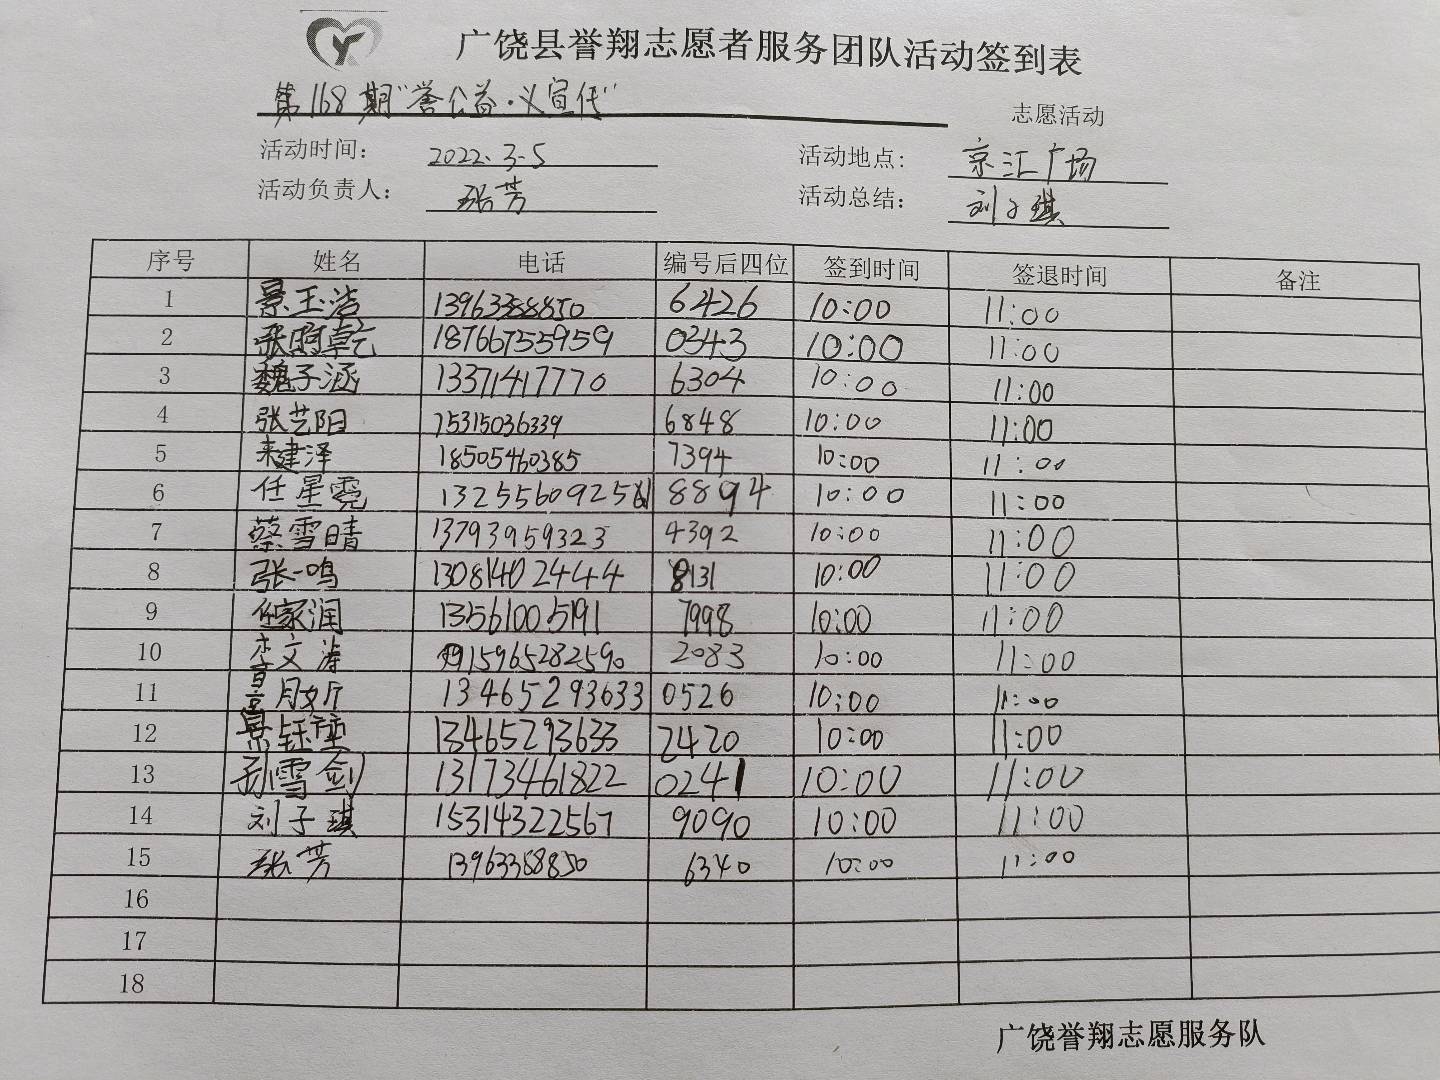 广饶县誉翔志愿者服务团队活动签到表
第168期"誉公益·义宣传" 志愿活动
活动时间: 2022.3-5 活动地点: 京汇广场
活动负责人: 张芳 活动总结: 刘子琪
序号 姓名 电话 编号后四位 签到时间 签退时间 备注
1 景玉洁 13963388850 6426 10:00 11:00
2 张 卓 18766755959 0343 10:00 11:00
3 魏子涵 13371417770 6304 10:00 11:00
4 张艺阳 15315036339 6848 10:00 11:00
5 来建泽 18505460385 7394 10:00 11:00
6 任星霓 8894 10:00 11:00
7 蔡雪晴 13793959323 4392 10:00 11:00
8 张一鸣 13081402444 8131 10:00 11:00
9 任家润 13561005191 7998 10:00 11:00
10 李文涛 15965282590 2083 10:00 11:00
11 13465293633 0526 10:00 11:00
12 景钰 13465293633 2420 10:00 11:00
13 孙雪剑 13173461822 0241 10:00 11:00
14 刘子琪 15314322567 9090 10:00 11:00
15 张芳 13963388850 6340 10:00 11:00
16
17
18
广饶誉翔志愿服务队